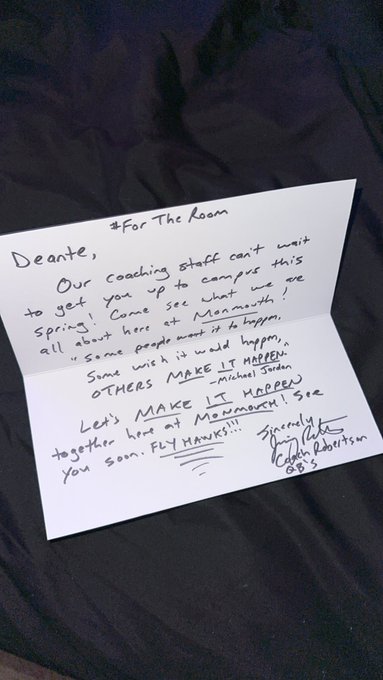 #For The Room
Deante,
Our coaching staff can't wait
to get you up to campus this
spring! Come see what we are
all about here at Monmouth!
"Some people want it to happen,
Some wish it would happen,
OTHERS MAKE IT HAPPEN"
-Michael Jordan
Let's MAKE IT HAPPEN
together here at MONMOUTH! See
you soon. FLY HAWKS!!!
Sincerely,
Coach Robertson
QB's